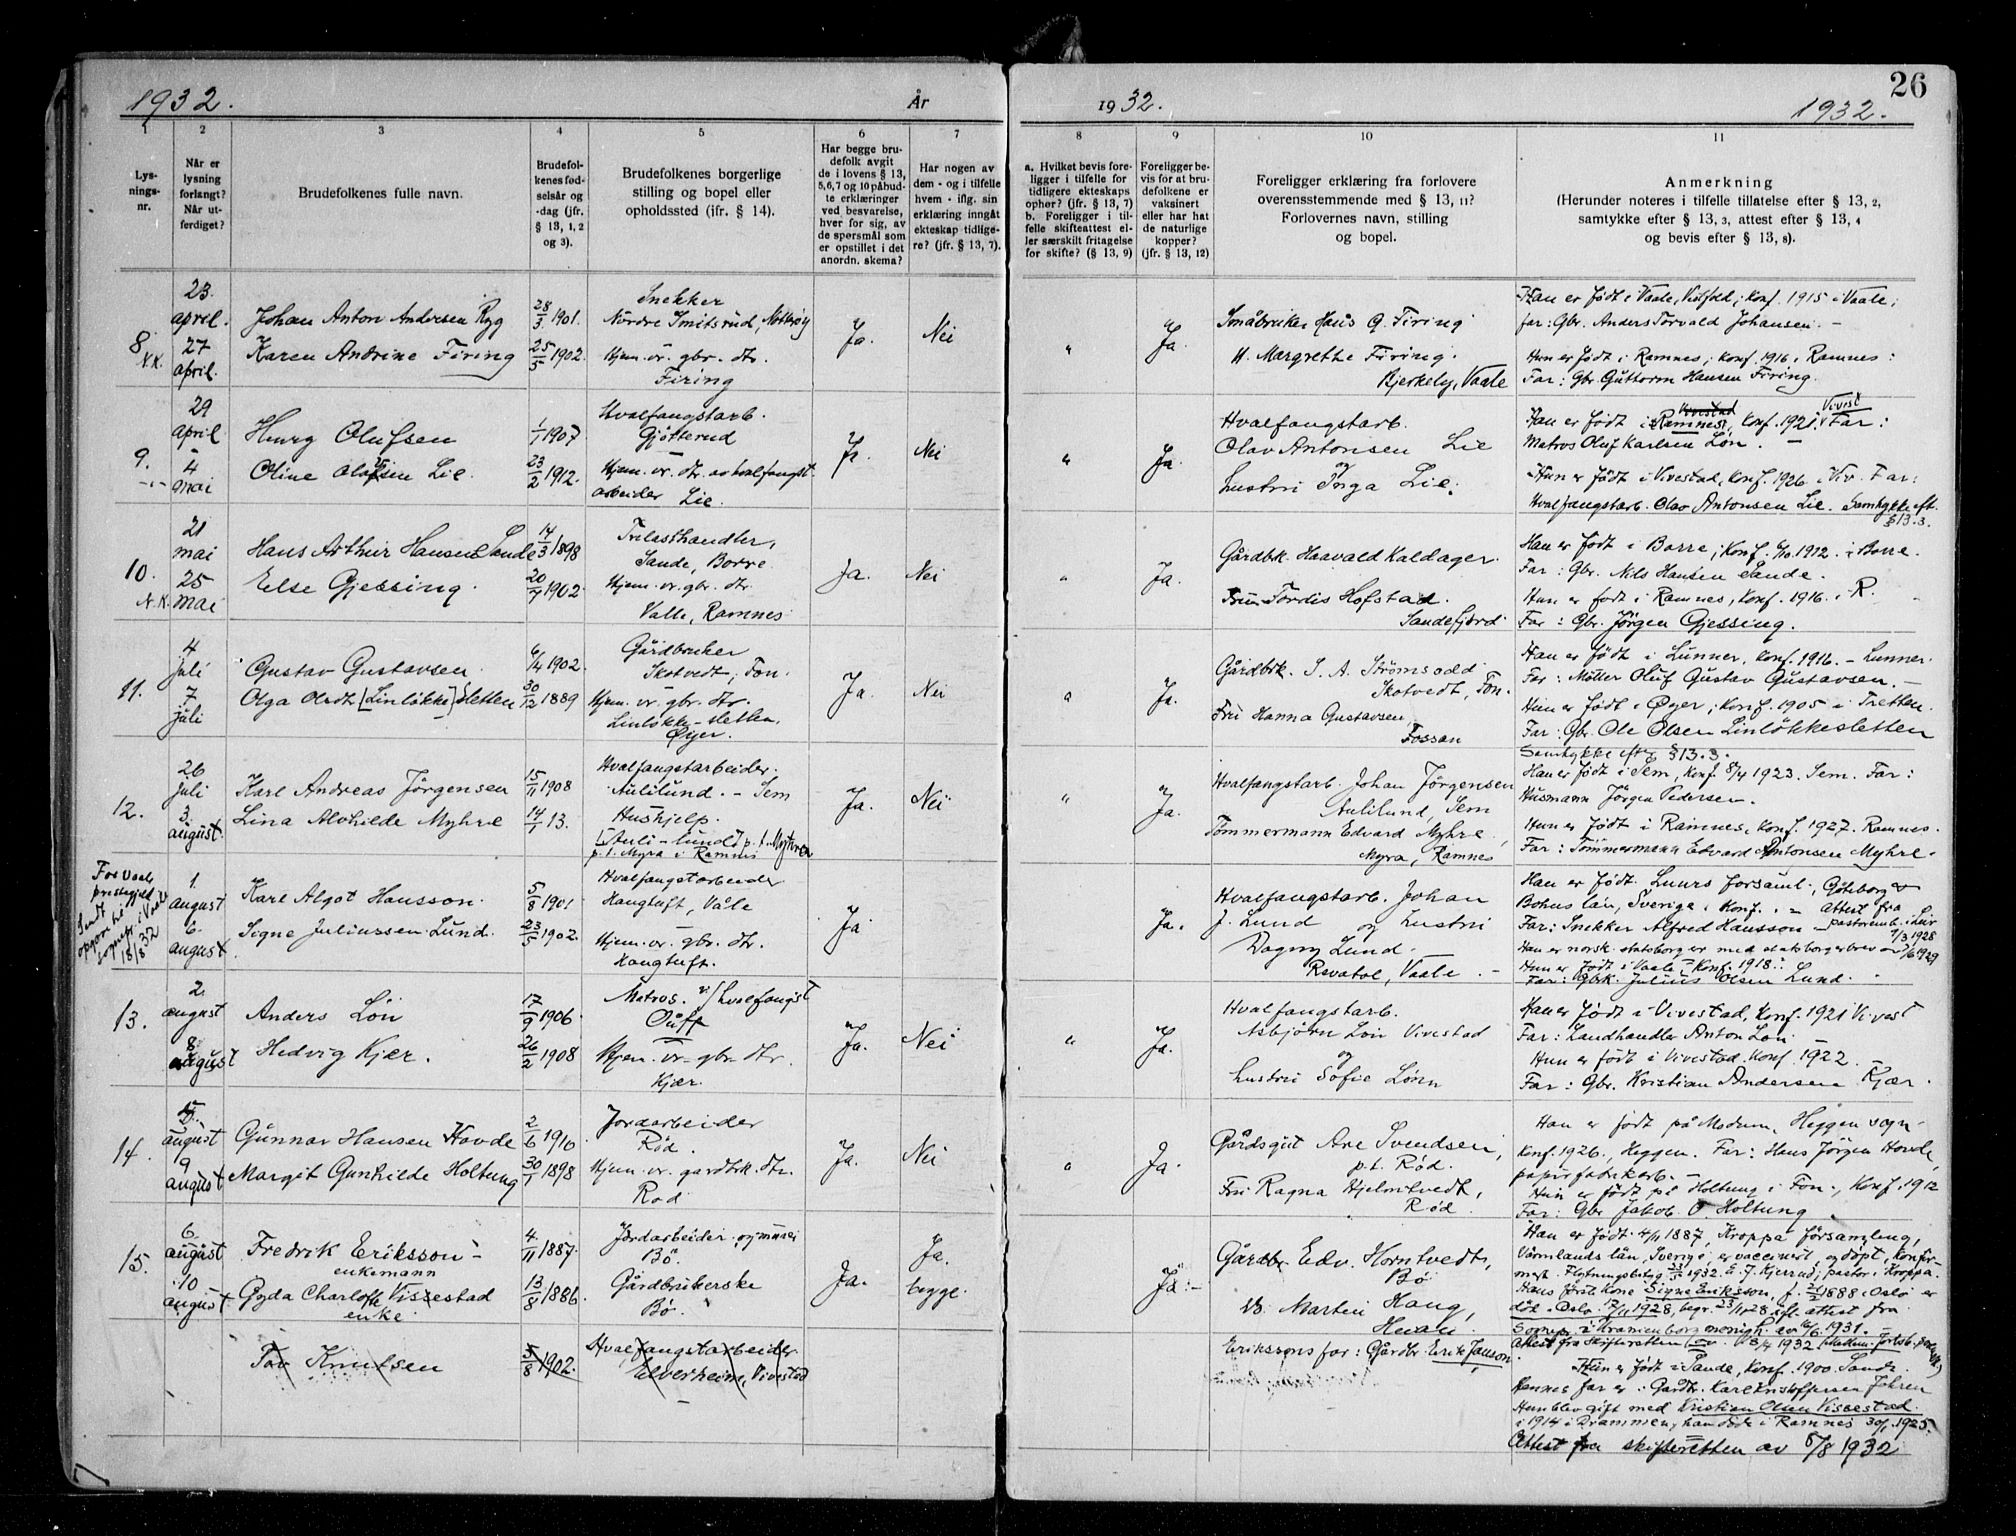 1932.
År
1932.
1932.
26
1
2
3
4
5
6
7
8
9
10
11
Lys-
nings-
nr.
Når er
lysning
forlangt?
Når ut-
ferdiget?
Brudefolkenes fulle navn.
Brudefol-
kenes fød-
selsår og
-dag (jfr.
§ 13, 1, 2
og 3).
Brudefolkenes borgerlige
stilling og bopel eller
opholdssted (ifr. § 14).
Har begge bru-
defolk avgit
de i lovens § 13,
5,6,7 og 10 påbud-
te erklæringer
ved besvarelse,
hver for sig, av
de spørsmål som
er opstillet i det
anordn. skema?
Har nogen av
dem - og i tilfelle
hvem - iflg. sin
erklæring inngåt
ekteskap tidlige-
re? (jfr. § 13, 7).
a. Hvilket bevis fore-
ligger i tilfelle for
tidligere ekteskaps
ophør? (jfr. § 13, 7)
b. Foreligger i til-
felle skifteattest el-
ler særskilt fritagelse
for skifte? (§ 13, 9)
Foreligger be-
vis for at bru-
defolkene er
vaksinert
eller har hat
de naturlige
kopper?
(jfr. § 13, 12)
Foreligger erklæring fra forlovere
overensstemmende med § 13, 11?
Forlovernes navn, stilling
og bopel.
Anmerkning
(Herunder noteres i tilfelle tillatelse efter § 13, 2,
samtykke efter § 13, 3, attest efter § 13, 4
og bevis efter § 13, 8).
8
23
april.
27
april.
Johan Anton Andersen Ryg
Karen Andrine Firing
28/3 1901.
25/5 1902.
Snekker
Nordre Smitsrud, Nøtterøy
Hjem. vr. gbr. dtr.
Firing
Ja.
Nei
"
Ja.
Småbruker Hans G. Firing
H. Margrethe Firing.
Bjerkely, Vaale
Han er født i Vaale, Vestfold; konf. 1915 i Vaale;
far: Gbr. Anders Torvald Johansen. -
Hun er født i Ramnes; konf. 1916 i Ramnes:
Far: Gbr. Guttorm Hansen Firing.
9.
29
april
-
4
mai
Henry Olufsen
Oline Olafsen Lie.
1/1 1907
23/2 1912.
Hvalfangstarb.
Gjötterud
Hjem. vr. dtr. av hvalfangst-
arbeider Lie.
Ja.
Nei
"
Ja.
Hvalfangstarb.
Olav Antonsen Lie
og
hustru Inga Lie.
Han er født i Ramnes, konf. 1921. Vivest Far:
Matros Oluf Karlsen Løn. -
Hun er født i Vivestad, konf. 1926 i Viv. Far:
Hvalfangstarb. Olav Antonsen Lie. Samtykke eft.
§13.3.
10.
N.K.
21
mai
25
mai
Hans Arthur Hansen Sande
Else Gjessing.
14/3 1898
20/7 1902
Trelasthandler,
Sande, Borre.
Hjem. vr. gbr. dtr.
Valle, Ramnes
Ja.
Nei
"
Ja.
Gårdbk. Haavald Kaldager.
Frue Tordis Hofstad.
Sandefjord.
Han er født i Borre; Konf. 1912. i Borre.
Far: Gbr. Nils Hansen Sande.
Hun er født i Ramnes, konf. 1916. i R.
Far: Gbr. Jörgen Gjessing.
11.
4
juli
7
juli
Gustav Gustavsen.
Olga Olsdt. [Linløkke] sletten
6/4 1902.
30/12 1889
Gårdbruker
Skotvedt, Fon.
Hjem. vr. gbr. dtr.
Linløkke-sletten.
Øyer.
Ja.
Nei
"
Ja.
Gårdbk. I. A. Strömsodd
Skotvedt, Fon.
Fru Hanna Gustavsen,
Fossan
Han er født i Lunner, konf. 1916. - Lunner.
Far: Möller Oluf Gustav Gustavsen. -
Hun er født i Øyer; konf. 1905 i Tretten.
Far: Gbr. Ole Olsen Linløkkesletten
12.
26
juli
3.
august.
Karl Andreas Jörgensen
Lina Alvhilde Myhre
15/11 1908
14/1 13.
Hvalfangstarbeider.
Aulilund. - Sem
Hushjelp.
[Auli-lund] p.t. Myhra
p.t. Myra i Ramnes
Ja.
Nei
"
Ja.
Hvalfangstarb. Johan Jörgensen
Aulilund, Sem
Tömmermann Edvard Myhre,
Myra, Ramnes
Samtykke eftg §13.3.
Han er født i Sem, konf. 8/4 1923. Sem. Far:
Husmann Jörgen Pedersen.
Hun er født i Ramnes. konf. 1927. Ramnes.
Far: Tömmermann Edvard Antonsen Myhre.
For Vaale
prestegjeld
Sendt
opgave til
sognepr. i Vaale
18/8 32
1.
august
6.
august
Karl Algot Hansson.
Signe Juliussen Lund.
5/8 1901
23/5 1902.
Hvalfangstarbeider
Haugtuft, Våle
Hjem. vr. gbr. dtr.
Haugtuft.
Ja
Ja.
Hvalfangstarb. Johan
J. Lund og hustru
Dagny Lund
Revatal, Vaale. -
Han er født. Luurs forsaml., Göteborg o
Bohus län, Sverige; konf. i " Attest fra
Far: Snekker Alfred Hansson - pastoremb. i Luur
9/3 1928
Han er norsk statsborger med statsborgerbrev av 7/6 1929
Hun er født i Vaale - konf. 1918.
Far: Gbrk. Julius Olsen Lund.
13.
2.
august
8.
august
Anders Lön
Hedvig Kjær.
17/9 1906.
26/2 1908
Matros. v/ hvalfangst
Ouff
Hjem. vr. gbr. dtr.
Kjær.
Ja.
Nei
"
Ja.
Hvalfangstarb.
Asbjørn Lön Vivestad
og
hustru Sofie Lönn
Han er født i Vivestad, konf. 1921 Vivest
Far: Landhandler Anton Lön.
Hun er født i Vivestad. Konf. 1922.
Far: Gbr. Kristian Andersen Kjær.
14.
5.
august
9
august
Gunnar Hansen Hovde
Margit Gunhilde Holtung
2/6 1910.
30/1 1898
Jordarbeider
Rød.
Hjem. vr. gardbrk. dtr.
Rød
Ja.
Nei
"
Ja.
Gårdsgut Are Svendsen,
p.t. Rød.
Fru Ragna Hjelmtvedt,
Rød.
Han er født på Modum, Heggen sogn.
konf. 1926., Heggen. Far: Hans Jörgen Hovde,
papirfabrikarb. -
Hun er født på Holtung i Fon., konf. 1912
Far: Gbr. Jakob O Holtung.
15.
6.
august
10
august
Fredrik Eriksson -
enkemann
Gyda Charlotte Vissestad
enke
4/11 1887.
13/8 1886.
Jordarbeider og murer
Bö.
Gårdbrukerske
Bö.
Ja.
Ja.
begge.
Ja.-
Gårdbr. Edv. Horntvedt,
Bö
Martin Haug,
Erikssons far: Gårdbr Erik Janson
Han er født. 4/11 1887, Kroppa församling,
Värmlands län, Sverige, er vaccinert, og döpt, konfir-
mert. Flytningsbetyg 23/5 1932. å J. Kjerrud, pastor i Kroppa.
Hans förste kone Signe Eriksson, f. 2/2 1888 i Oslo er
död i Oslo 17/11 1928, begr. 23/11 28 ifl. attest fra
Sognepr. i Kranienborg menigh. av 12/6. 1931. -
Attest fra skifteretten 8/4 1932
Hun er född i Sande, konf. 1900. Sande.
Hennes far er: Gårdbr. Karl Kristoffersen Jahren
Hun blev gift med Kristian Olsen Vissestad
i 1914 i Drammen, han døde i Ramnes 30/1. 1925.
Attest fra skifteretten av 5/8 1932
Tov Knutsen
5/8 1902.
Hvalfangstarbeider
Elverheim, Vivestad